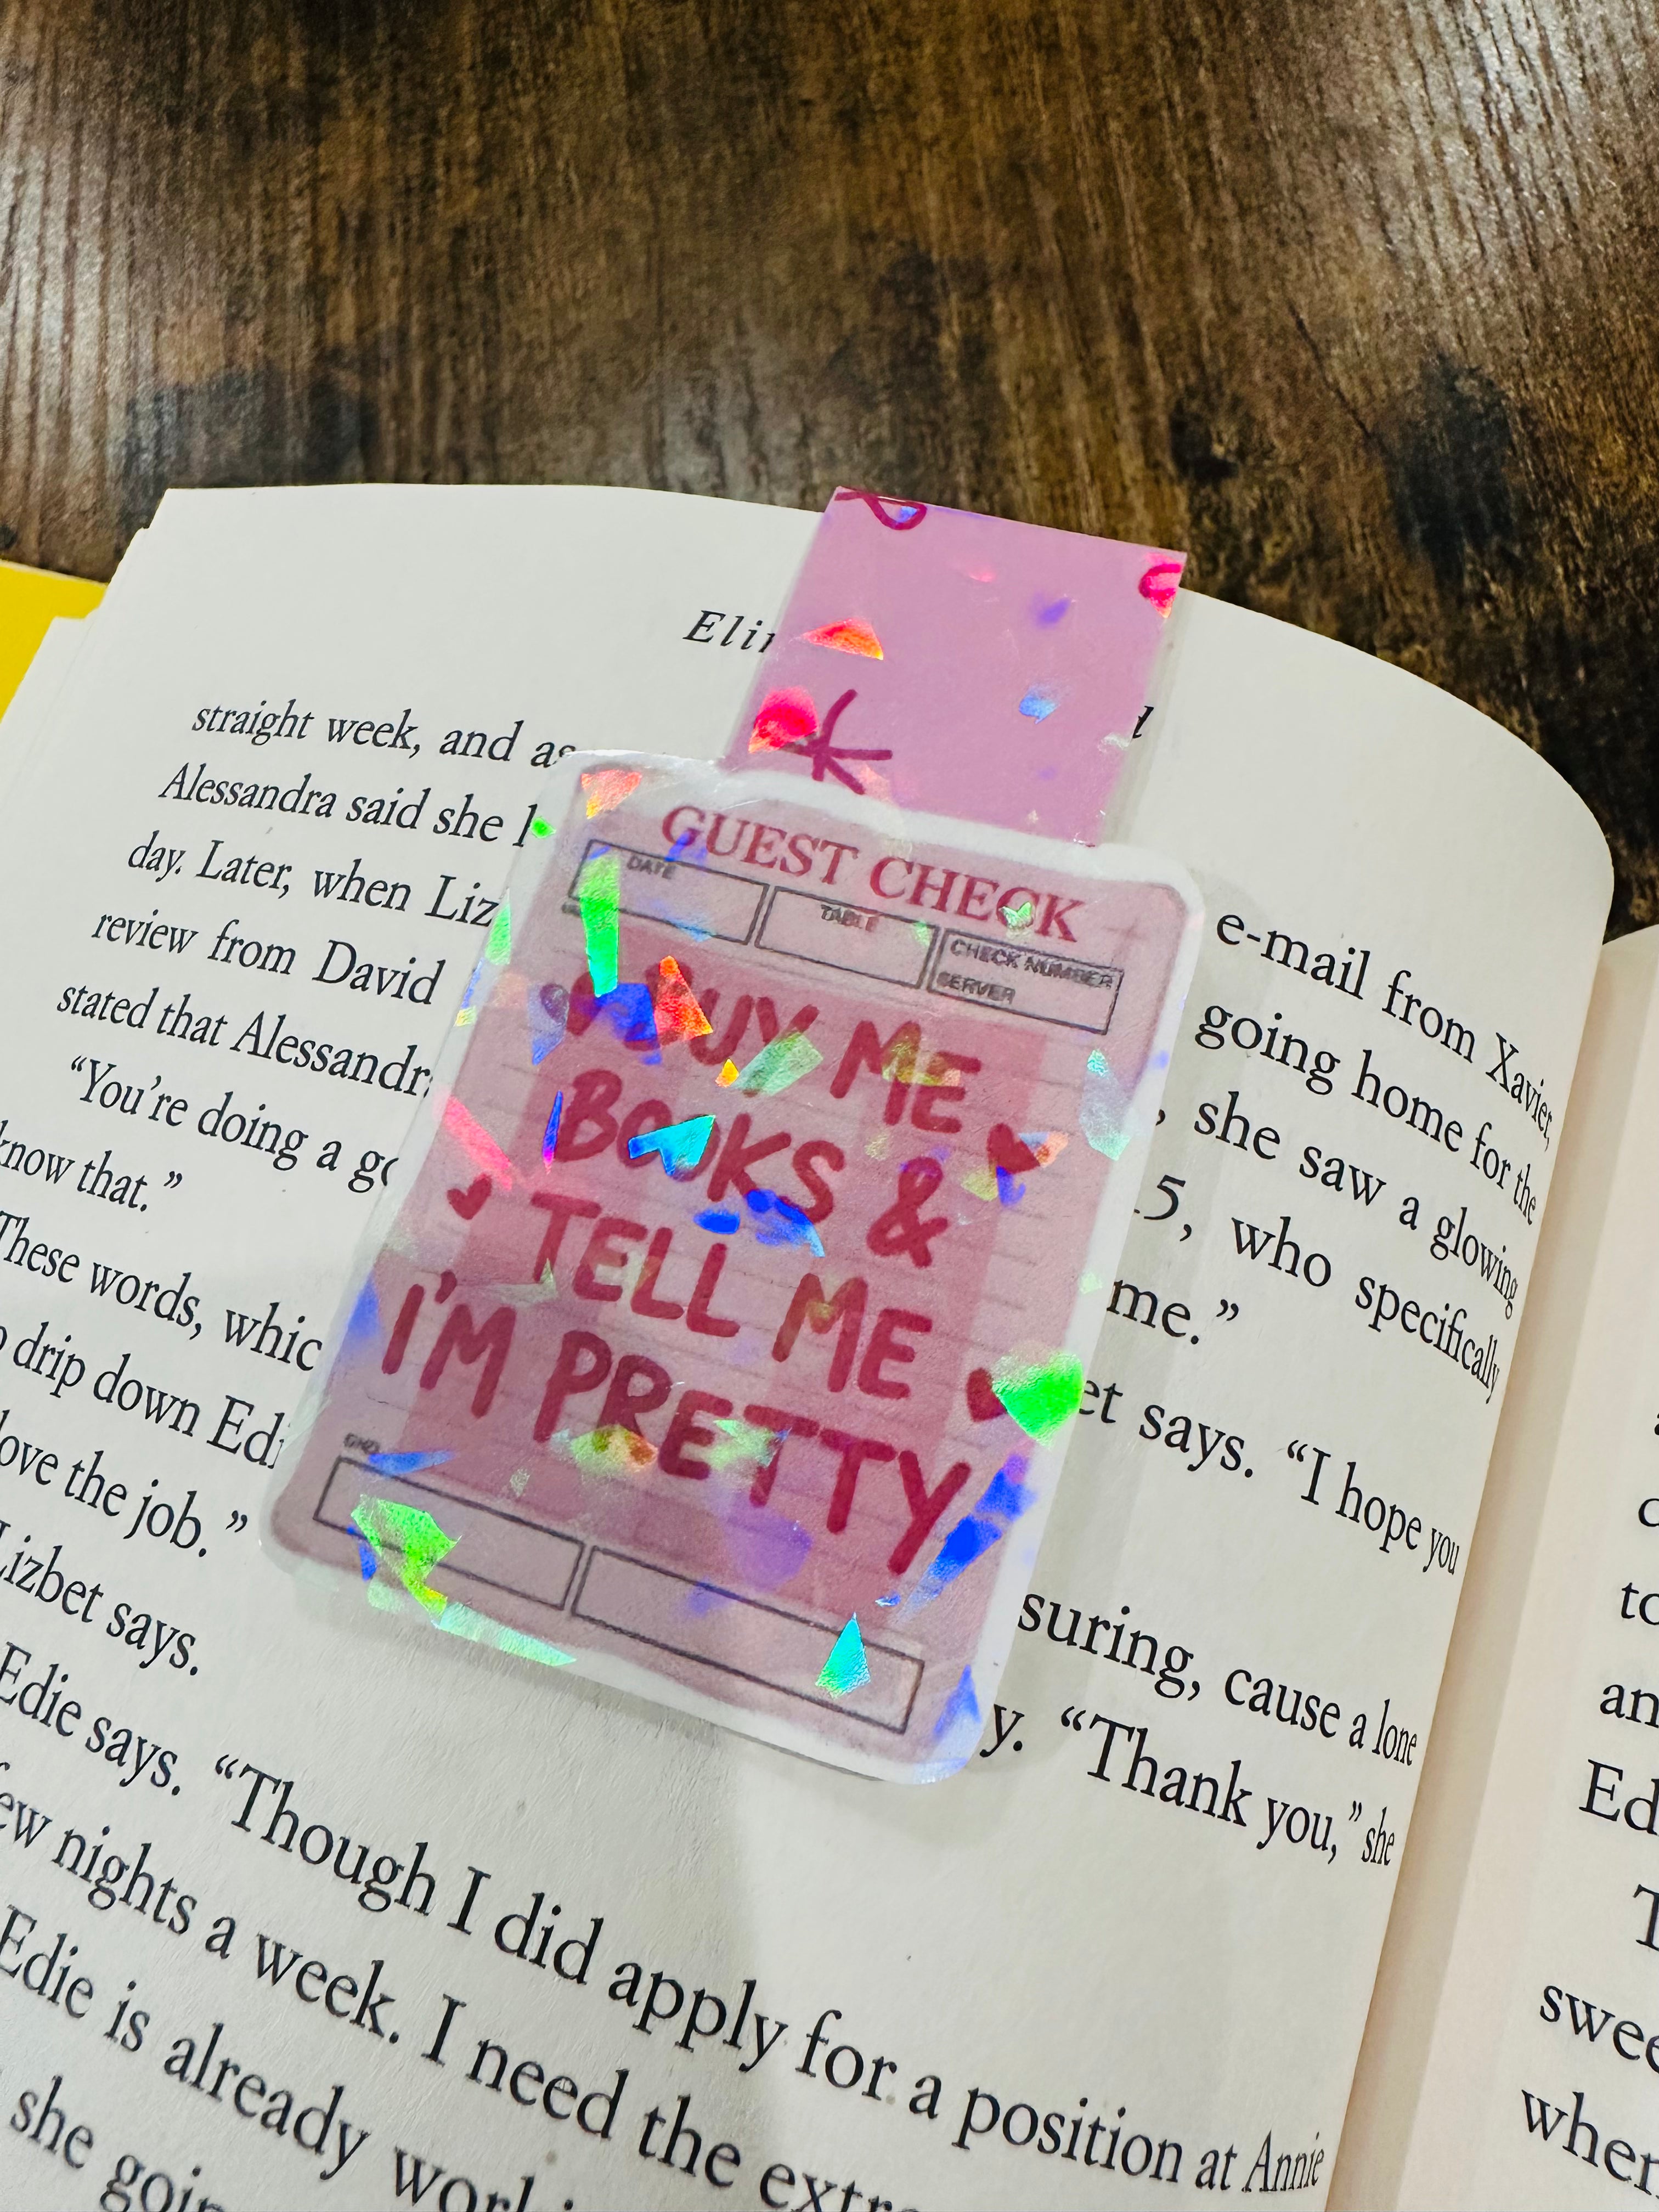 straight week, and as
Alessandra said she
day. Later, when Liz
review from David
stated that Alessandr
“You’re doing a
know that.”
These words, whic
drip down Edi
love the job.”
Lizbet says.
Edie says. “Though I did apply for a position at Annie
few nights a week. I need the extra
Edie is already
she going
GUEST CHECK
DATE
TABLE
CHECK NUMBER
SERVER
BUY ME
BOOKS &
TELL ME
I'M PRETTY
e-mail from Xavier,
going home for the
, she saw a glowing
15, who specifically
me.”
et says. “I hope you
suring, cause a lone
y. “Thank you,” she
Ed
swee
when